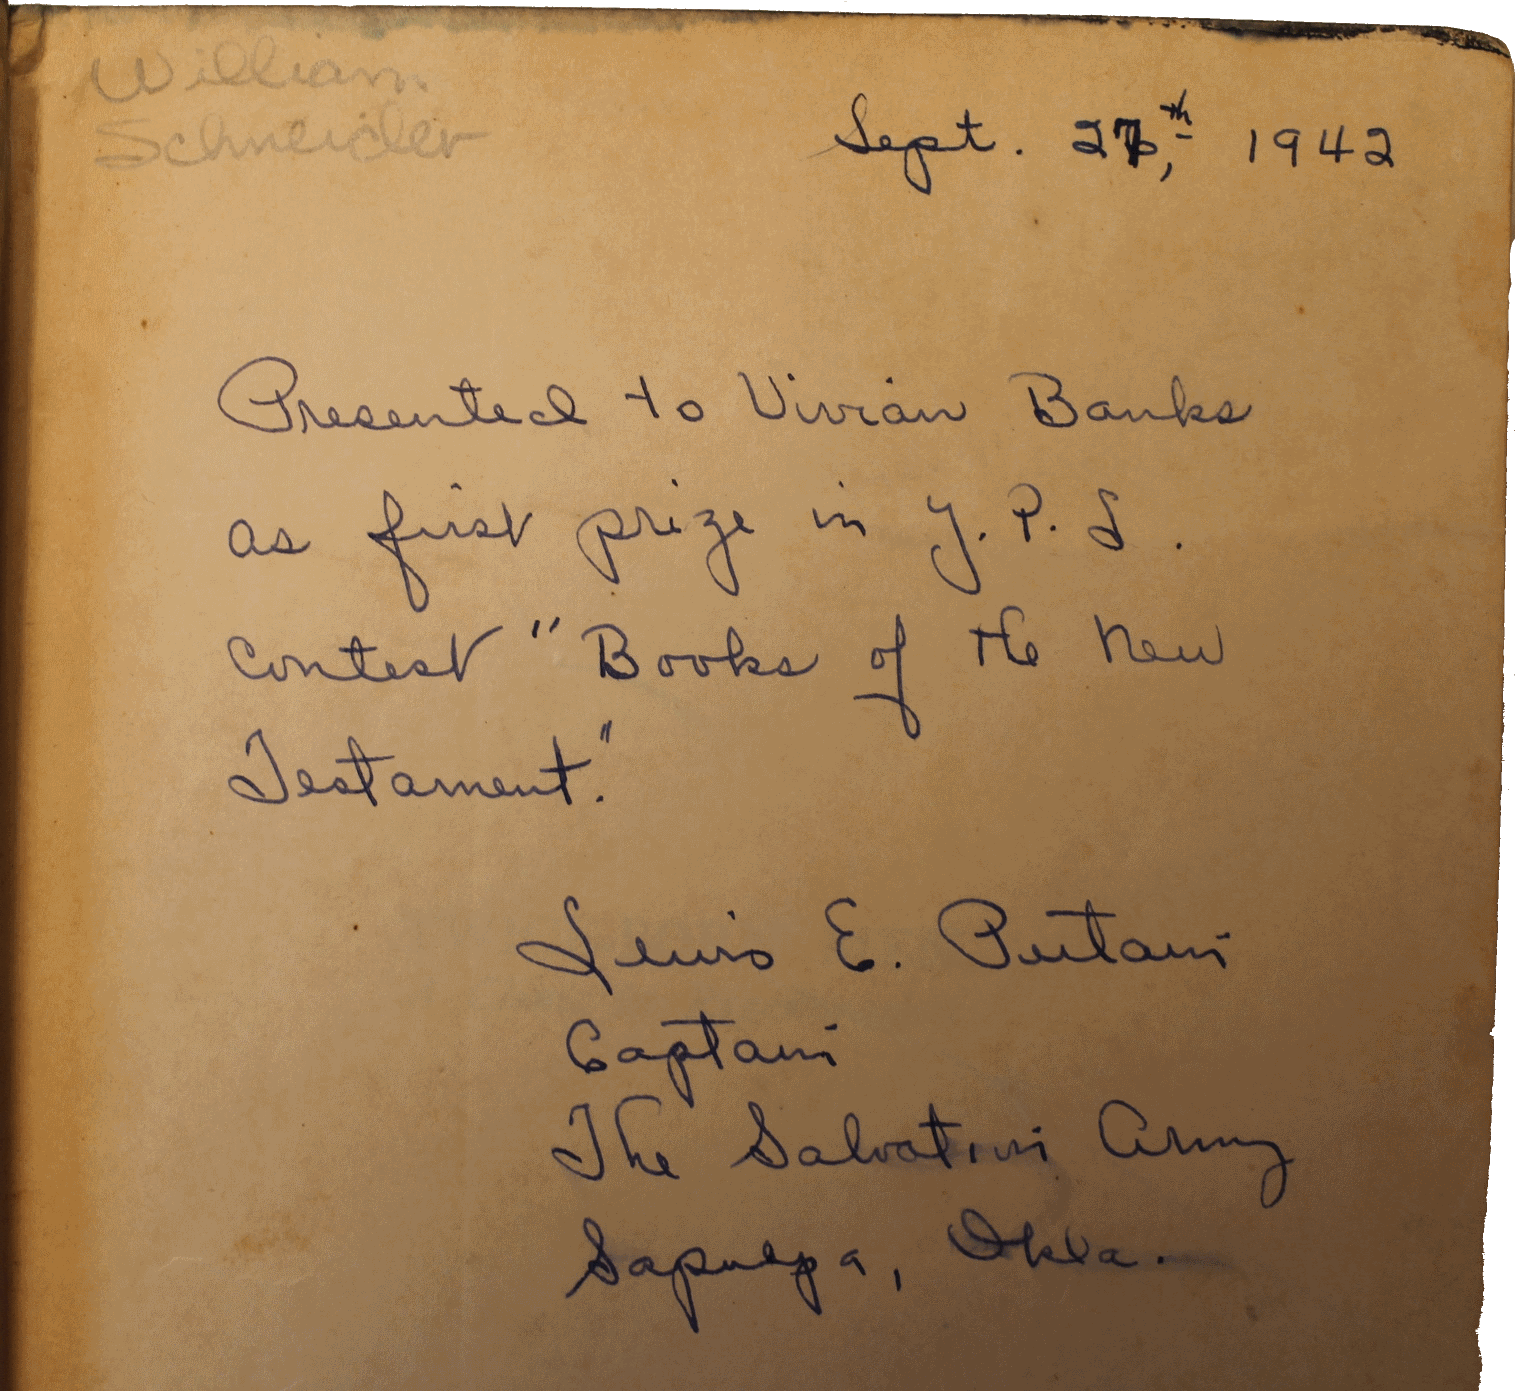 William
Schneider
Sept. , 1942
Presented to Vivian Banks
as first prize in Y. P. L.
Contest "Books of the New
Testament."
Lewis E.
Captain
The Salvation Army
Sapulpa, Okla.